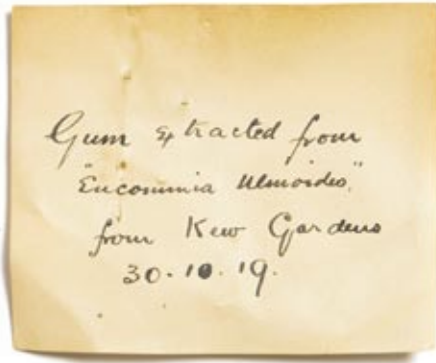 Gum extracted from
"Eucommia Ulmoides"
from Kew Gardens
30.10.19.